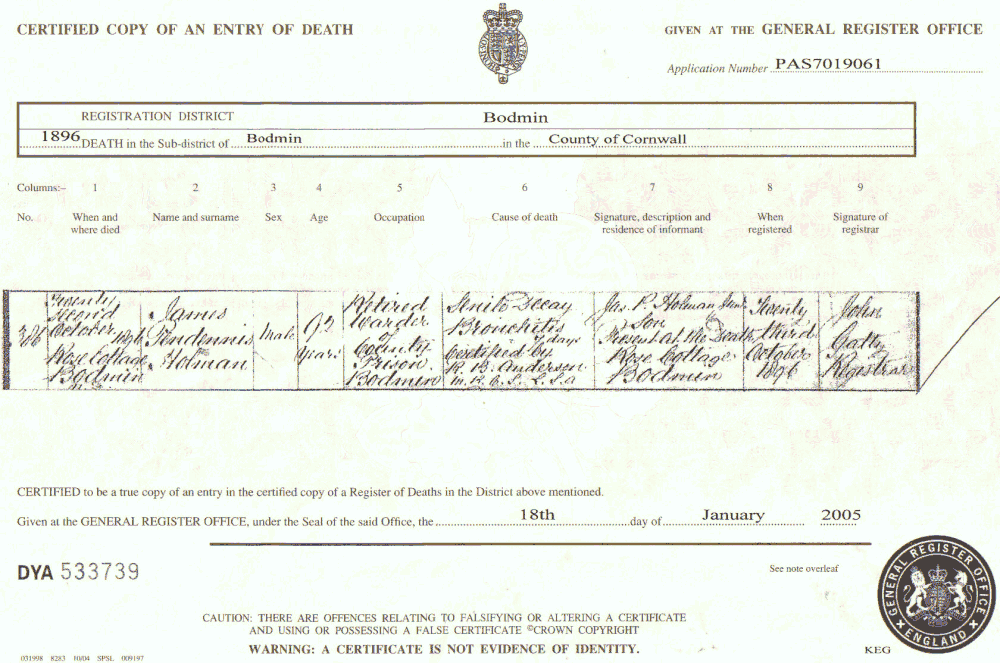 CERTIFIED COPY OF AN ENTRY OF DEATH
GIVEN AT THE GENERAL REGISTER OFFICE
Application Number PAS7019061
REGISTRATION DISTRICT Bodmin
1896 DEATH in the Sub-district of Bodmin in the County of Cornwall
Columns:- 1 2 3 4 5 6 7 8 9
No. When and where died Name and surname Sex Age Occupation Cause of death Signature, description and residence of informant When registered Signature of registrar
Twenty
Second
October 1896
Rose Cottage
Bodmin
James
Pendennis
Holman
Male
92
Years
Retired
Warder
of
County
Prison
Bodmin
Senile Decay
Bronchitis
7 days
Certified by
R. B. Anderson
M.R.C.S. L.S.A
Jas. P. Holman Junr
Son
Present at the Death
Rose Cottage
Bodmin
Twenty
third
October
1896
John
Registrar
CERTIFIED to be a true copy of an entry in the certified copy of a Register of Deaths in the District above mentioned.
Given at the GENERAL REGISTER OFFICE, under the Seal of the said Office, the 18th day of January 2005
DYA 533739
See note overleaf
CAUTION: THERE ARE OFFENCES RELATING TO FALSIFYING OR ALTERING A CERTIFICATE
AND USING OR POSSESSING A FALSE CERTIFICATE ©CROWN COPYRIGHT
WARNING: A CERTIFICATE IS NOT EVIDENCE OF IDENTITY.
GENERAL REGISTER OFFICE
ENGLAND
KEG
031998 8283 10/04 SPSL 009197